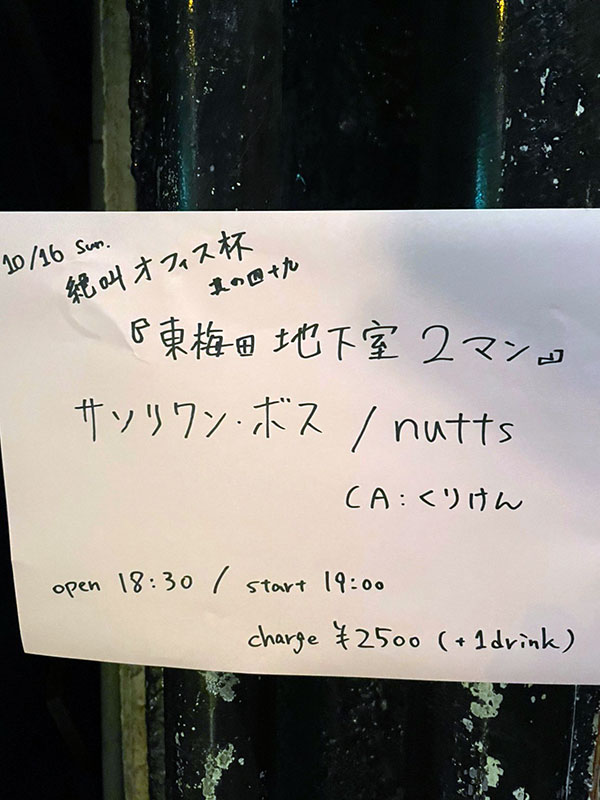 10/16 Sun.
絶叫オフィス杯
其の四十九
『東梅田 地下室 2マン』
サソリワン・ボス / nutts
CA:くりけん
open 18:30 / start 19:00
charge ¥2500 (+1drink)